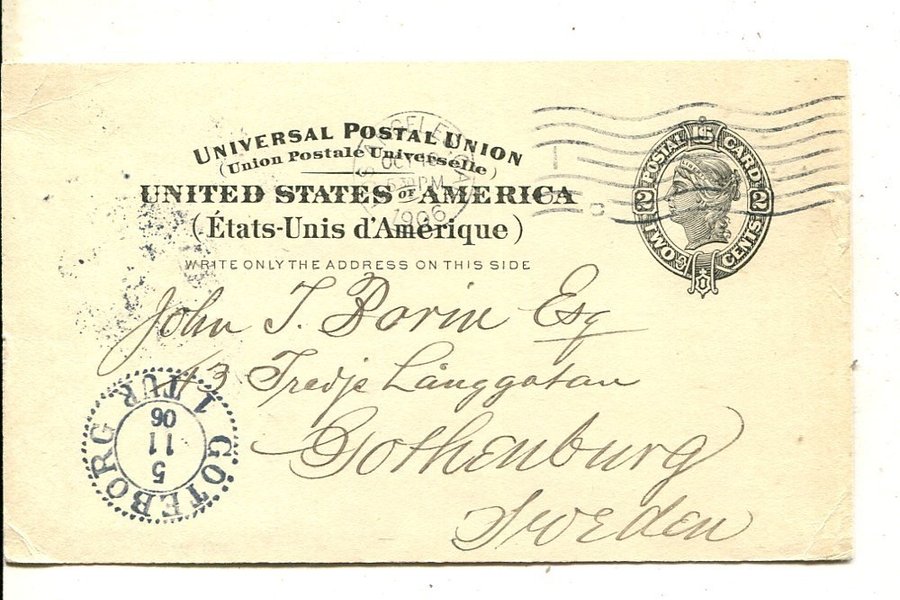 UNIVERSAL POSTAL UNION
(Union Postale Universelle)
UNITED STATES OF AMERICA
(États-Unis d'Amérique)
WRITE ONLY THE ADDRESS ON THIS SIDE
OCT
PM
1906
POSTAL CARD
U.S.
2 2
TWO CENTS
John T. Dorin Esq
43 Tredje Långgatan
Gothenburg
Sweden
GÖTEBORG 1 TUR
5
11
06